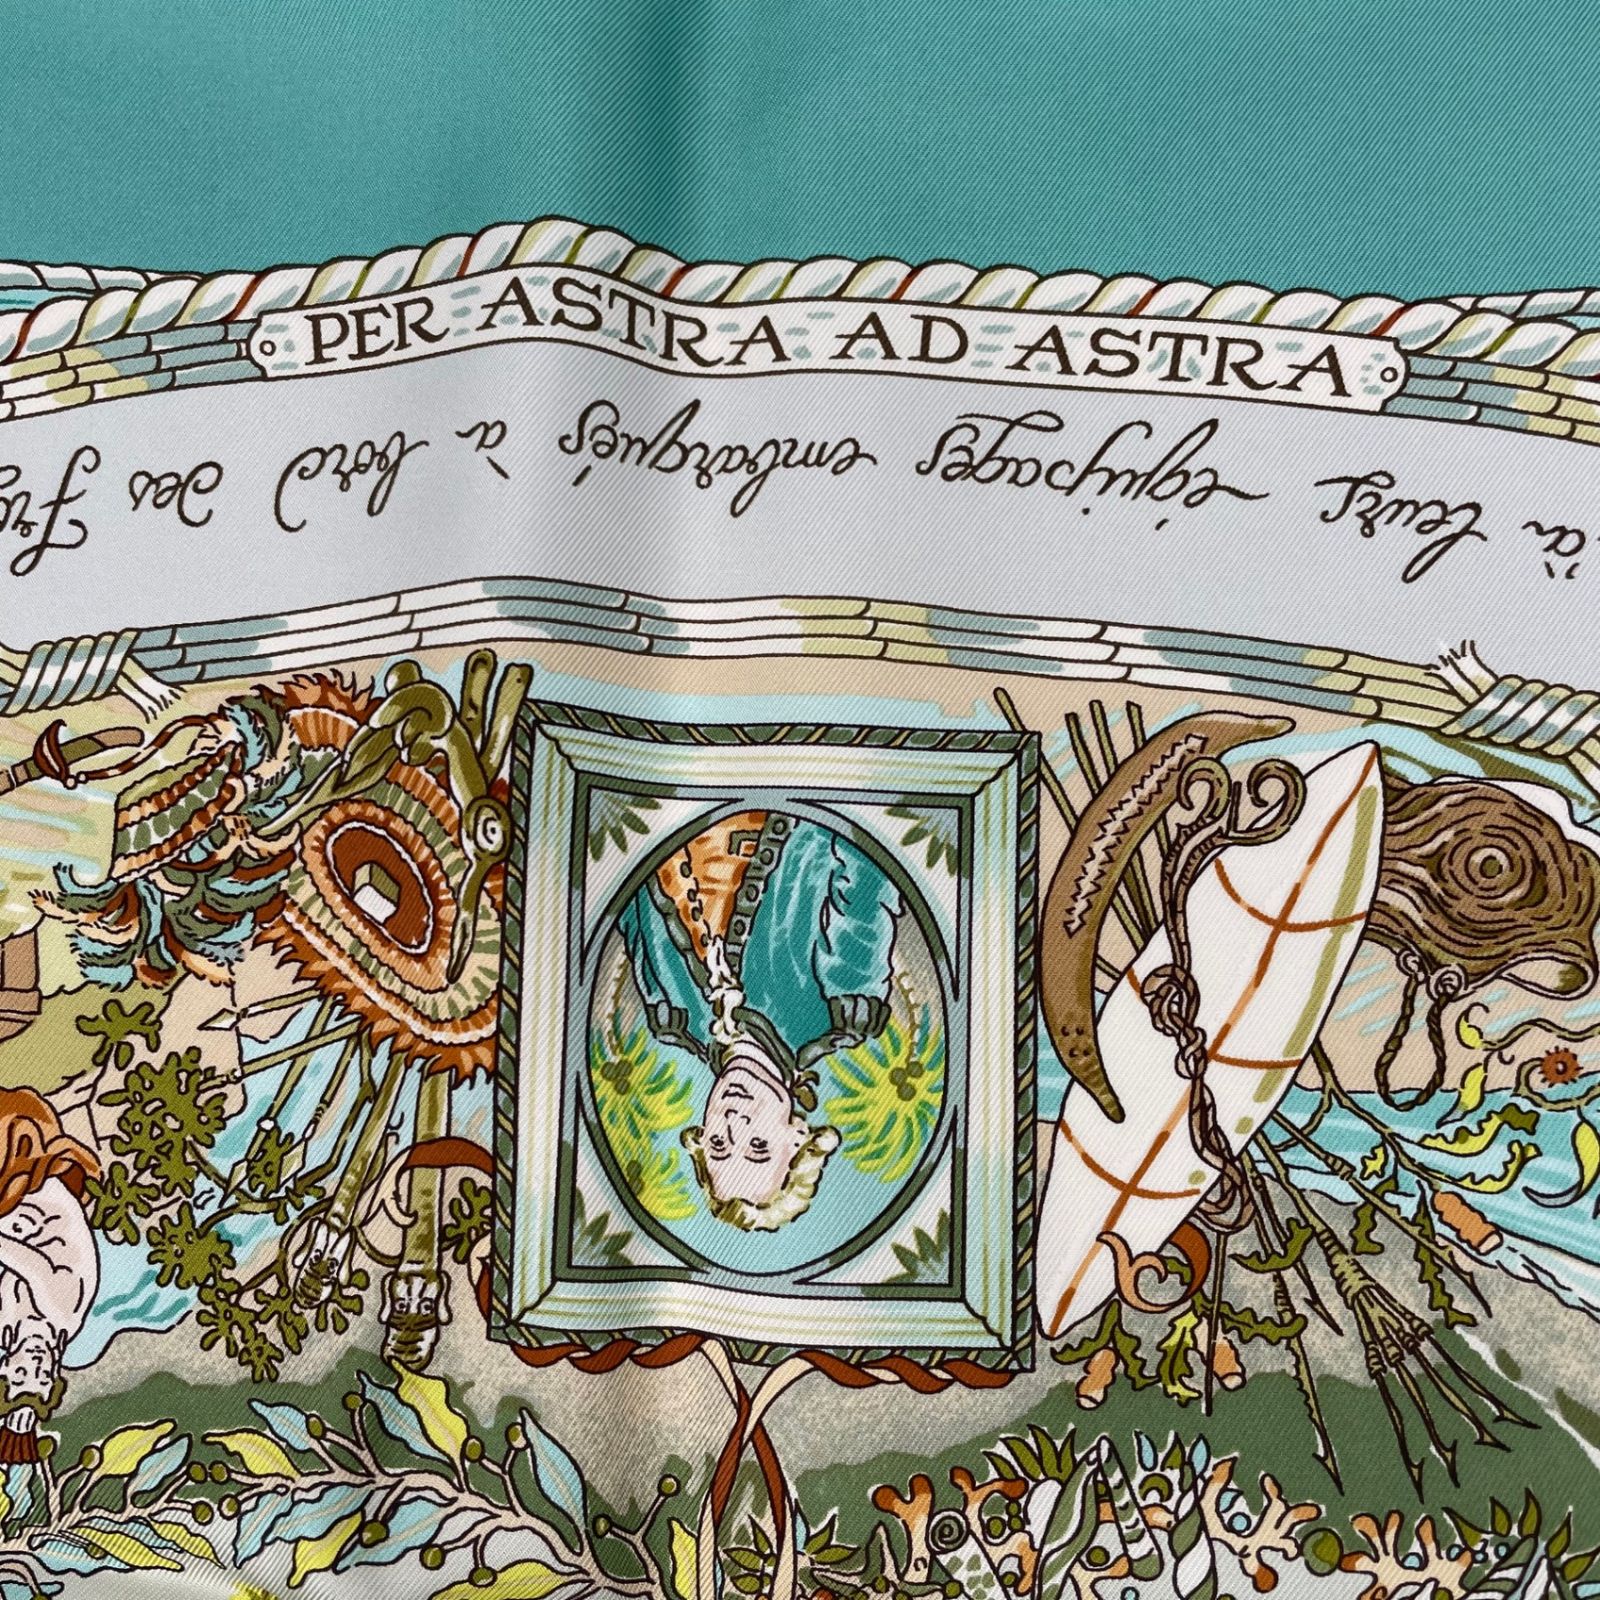 PER ASTRA AD ASTRA
à leurs équipages embarqués à bord des